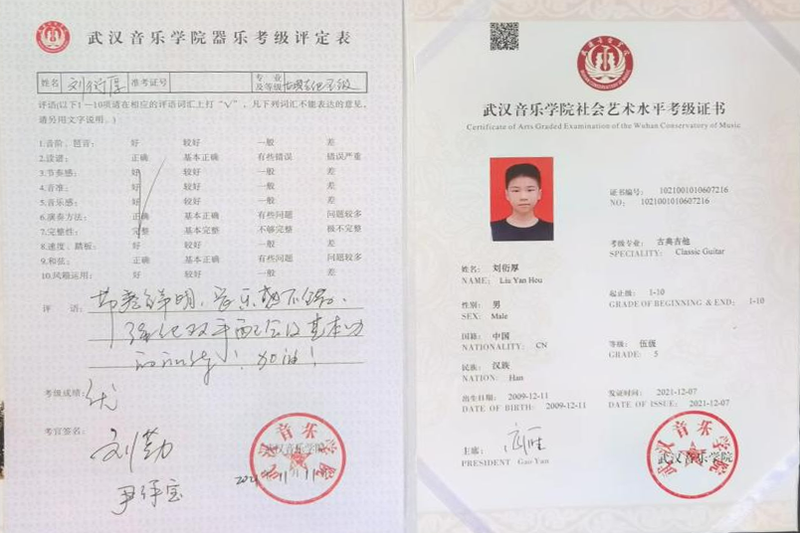 武汉音乐学院器乐考级评定表
姓名 刘衍厚 准考证号 专业及等级 古典吉他五级
评语(以下1—10项请在相应的评语词汇上打"√",凡下列词汇不能表达的意见,
请另用文字说明。)
1.音阶、琶音: 好 较好 一般 差
2.读谱: 正确 基本正确 有些错误 错误严重
3.节奏感: 好 较好 一般 差
4.音准: 好 较好 一般 差
5.音乐感: 好 较好 一般 差
6.演奏方法: 正确 基本正确 有些问题 问题较多
7.完整性: 完整 基本完整 不够完整 极不完整
8.速度、踏板: 好 较好 一般 差
9.和弦: 正确 基本正确 有些问题 问题较多
10.风箱运用: 好 较好 一般 差
评 语: 节奏鲜明、音乐感不错。
强化双手配合及基本功
的训练!加油!
考级成绩: 优
考官签名: 刘勤
武汉音乐学院
武汉音乐学院社会艺术水平考级证书
Certificate of Arts Graded Examination of the Wuhan Conservatory of Music
证书编号: 1021001010607216
NO: 1021001010607216
考级专业: 古典吉他
SPECIALITY: Classic Guitar
姓名: 刘衍厚
NAME: Liu Yan Hou
起止级: 1-10
GRADE OF BEGINNING & END: 1-10
性别: 男
SEX: Male
国籍: 中国
NATIONALITY: CN
等级: 伍级
GRADE: 5
民族: 汉族
NATION: Han
出生日期: 2009-12-11
DATE OF BIRTH: 2009-12-11
发证时间: 2021-12-07
DATE OF ISSUE: 2021-12-07
主席:
PRESIDENT Gao Yan
武汉音乐学院